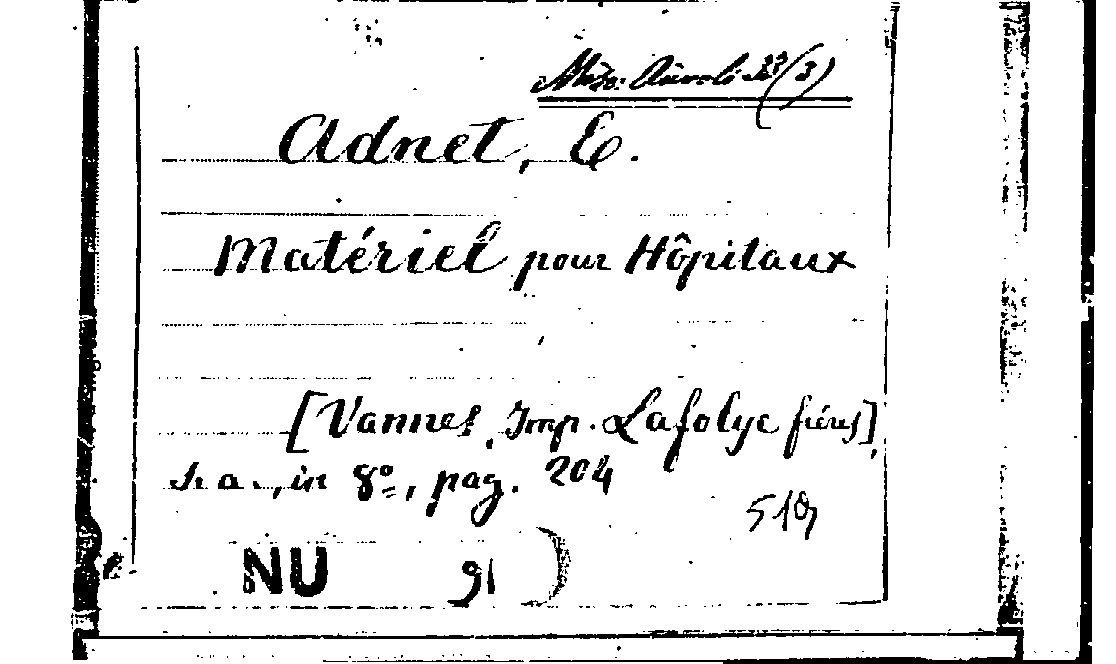 Misc. 33(3)
Adnet, E.
Matériel pour Hôpitaux
[Vannes, Imp. Lafolye frères],
s. a., in 8º, pag. 204
519
NU 91